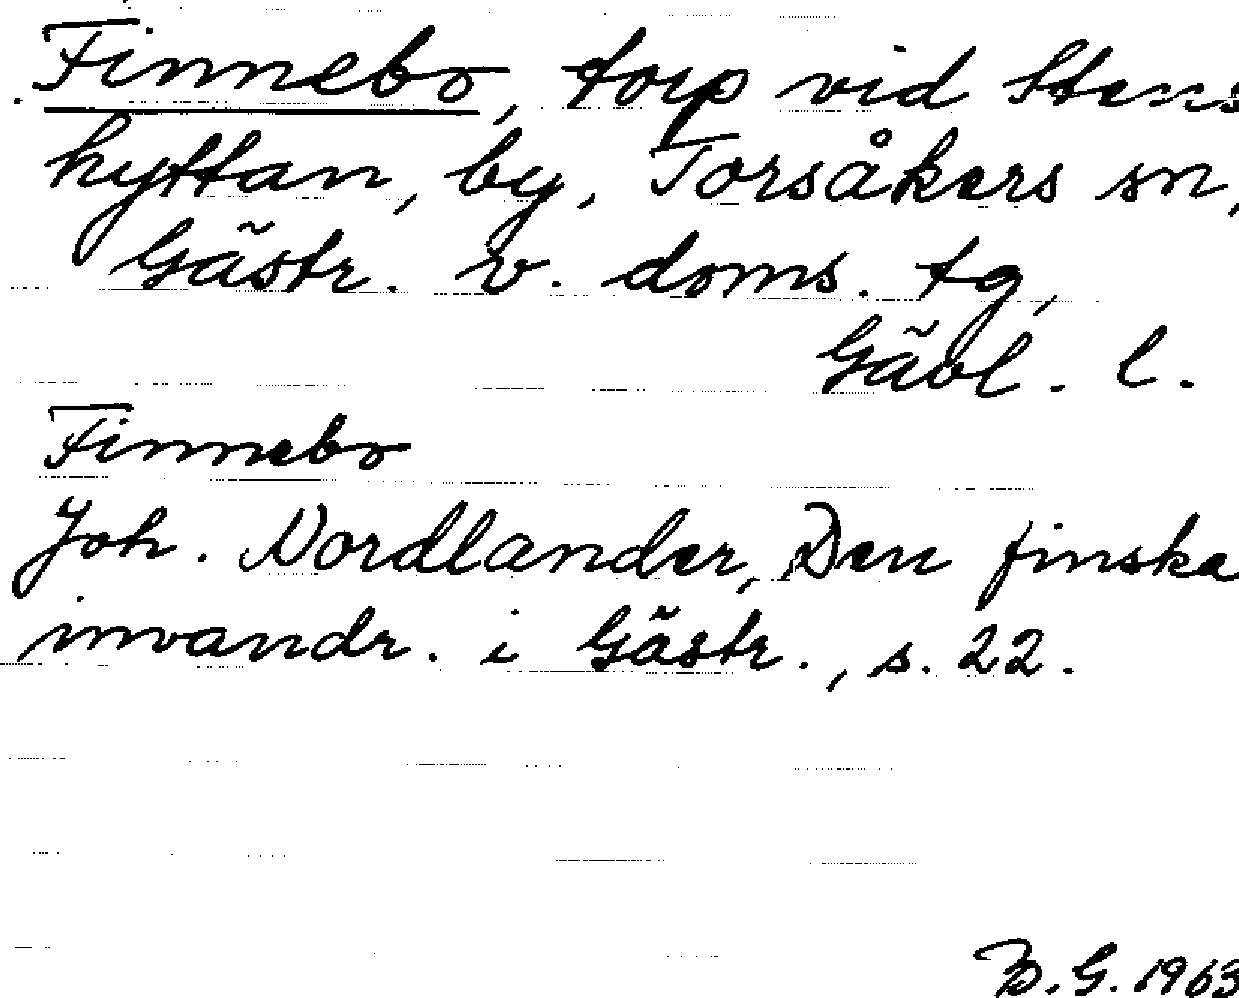 Finnebo, torp vid Stens
hyttan, by, Torsåkers sn,
Gästr. v. doms. tg,
Gävl. l.
Finnebo
Joh. Nordlander, Den finska
invandr. i Gästr., s. 22.
B.G. 1963